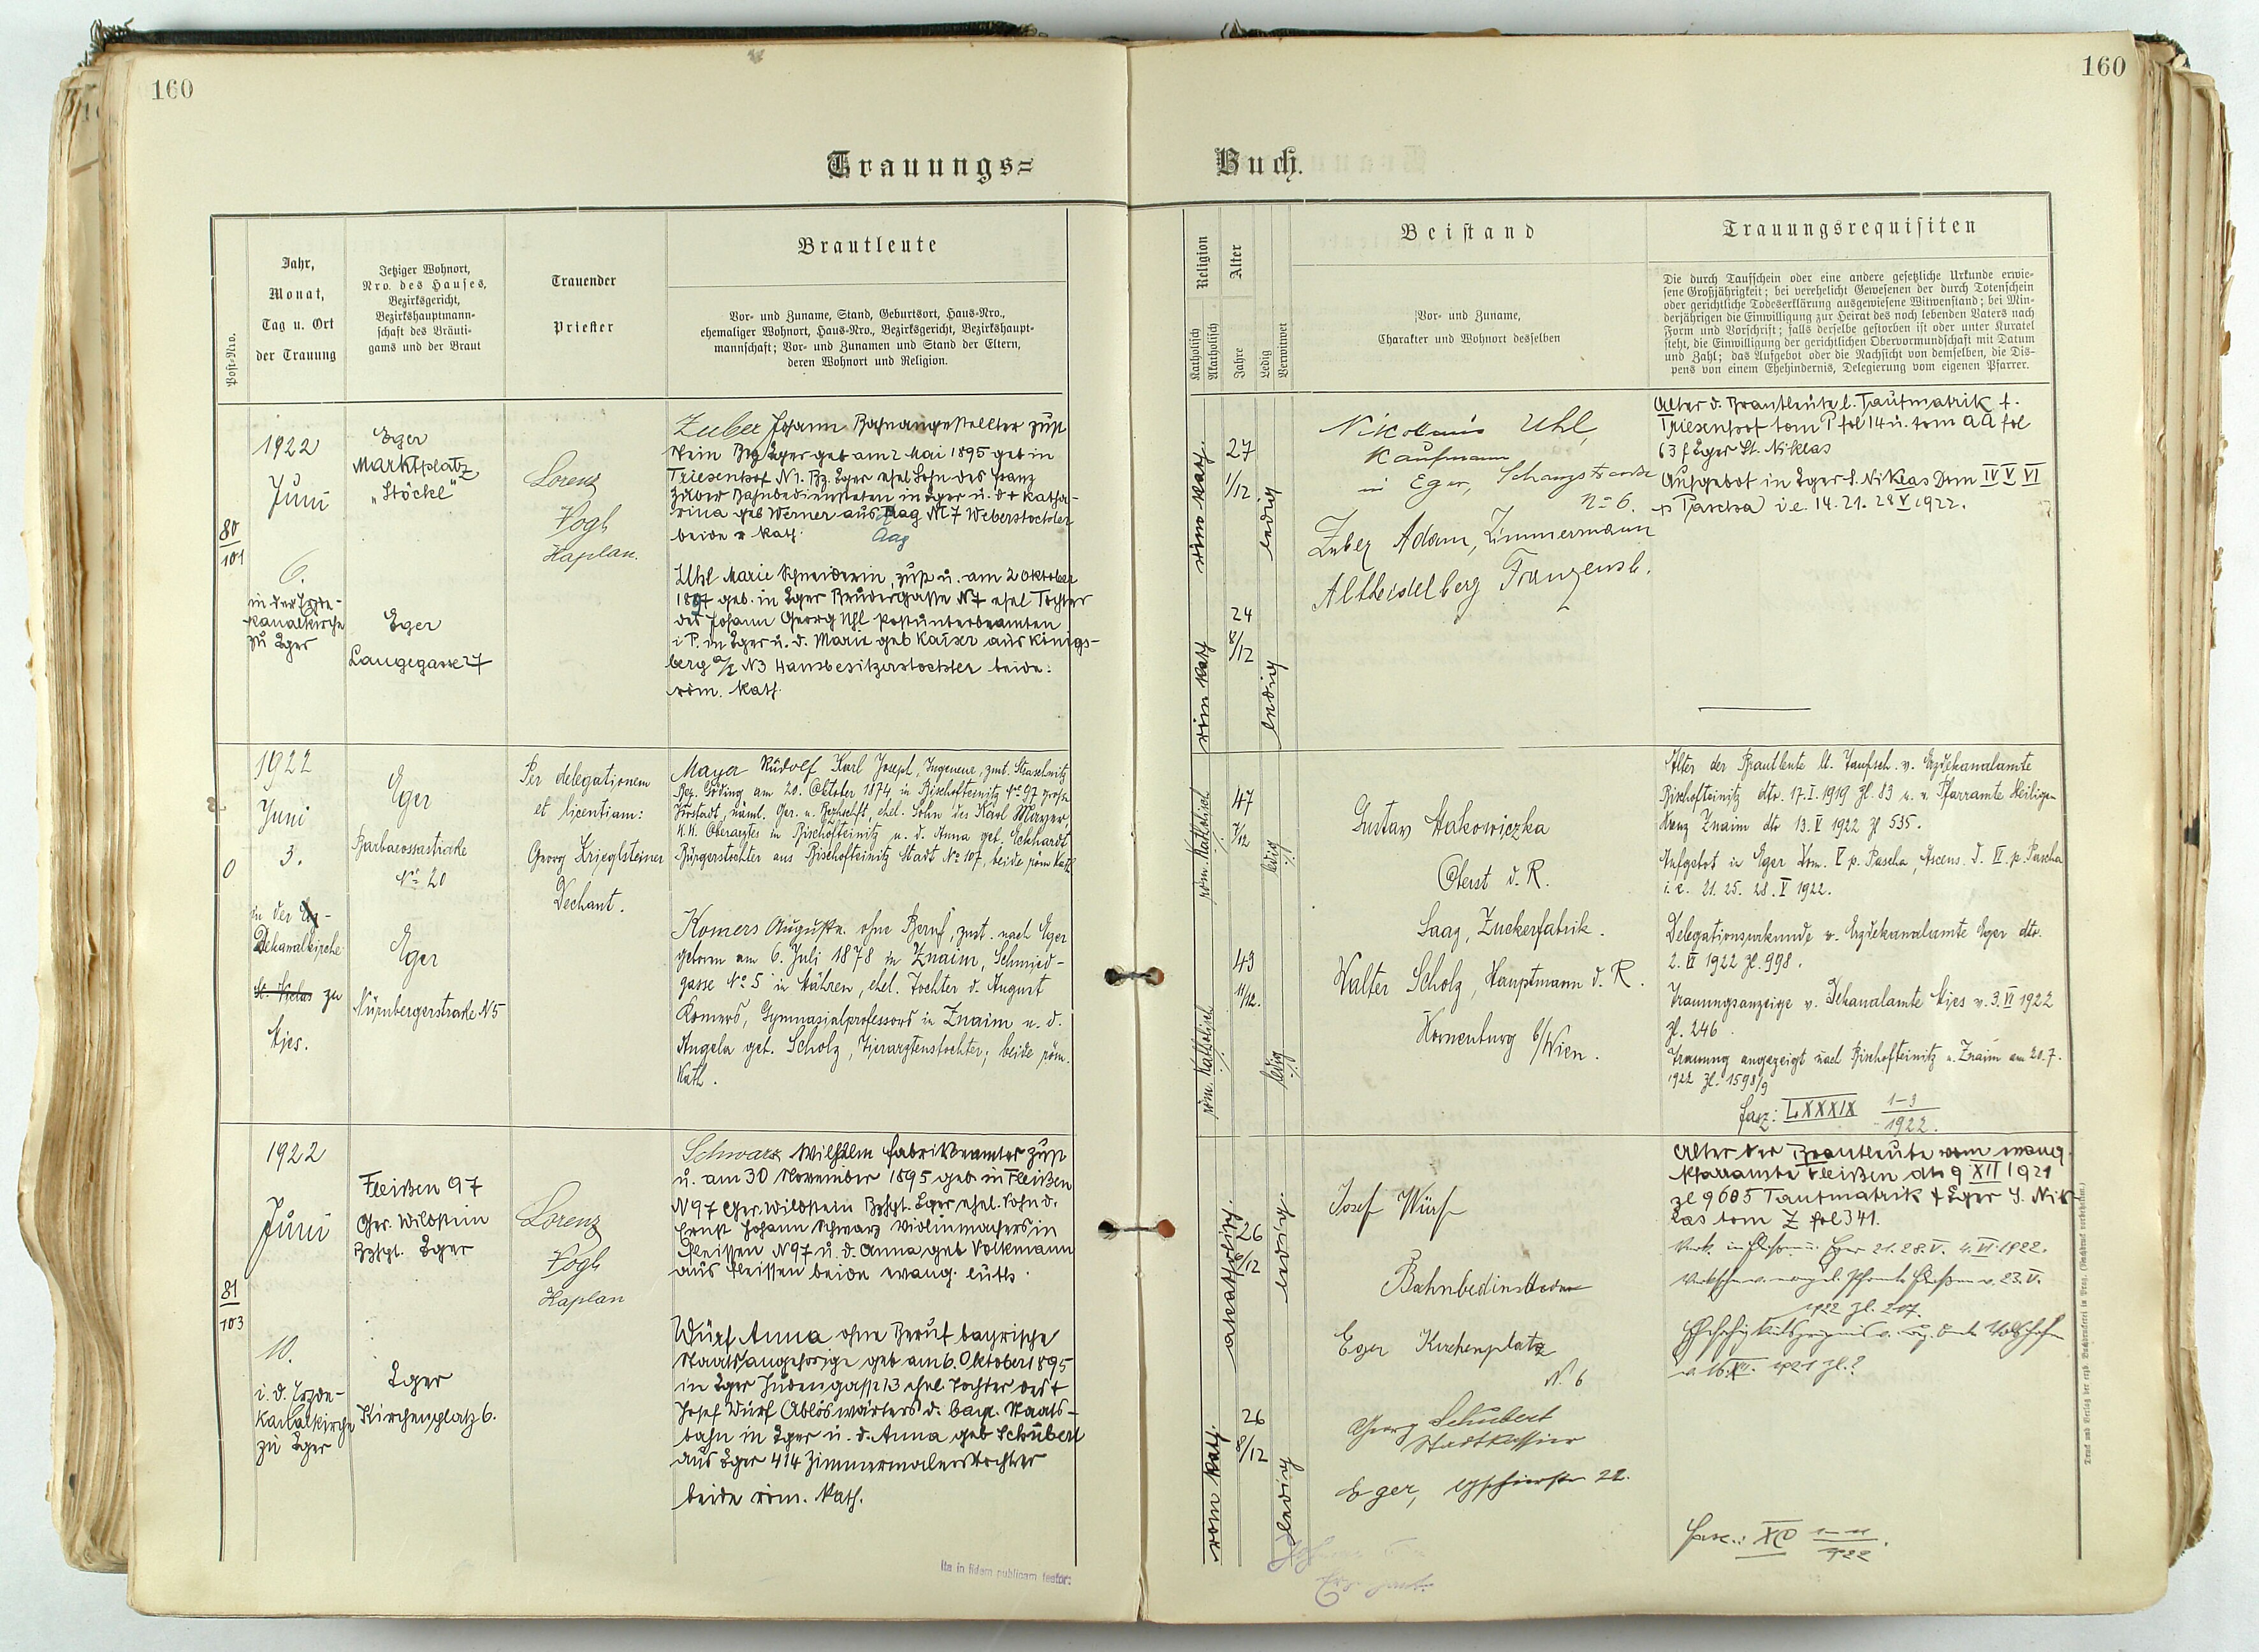 160
160
Trauungs=
Buch.
Post-Nro.
Jahr,
Monat,
Tag u. Ort
der Trauung
Jetziger Wohnort,
Nro. des Hauses,
Bezirksgericht,
Bezirkshauptmann-
schaft des Bräuti-
gams und der Braut
Trauender
Priester
Brautleute
Vor- und Zuname, Stand, Geburtsort, Haus-Nro.,
ehemaliger Wohnort, Haus-Nro., Bezirksgericht, Bezirkshaupt-
mannschaft; Vor- und Zunamen und Stand der Eltern,
deren Wohnort und Religion.
Religion
Katholisch
Akatholisch
Alter
Jahre
Ledig
Verwitwet
Beistand
Vor- und Zuname,
Charakter und Wohnort desselben
Trauungsrequisiten
Die durch Taufschein oder eine andere gesetzliche Urkunde erwie-
sene Großjährigkeit; bei verehelicht Gewesenen der durch Totenschein
oder gerichtliche Todeserklärung ausgewiesene Witwenstand; bei Min-
derjährigen die Einwilligung zur Heirat des noch lebenden Vaters nach
Form und Vorschrift; falls derselbe gestorben ist oder unter Kuratel
steht, die Einwilligung der gerichtlichen Obervormundschaft mit Datum
und Zahl; das Aufgebot oder die Nachsicht von demselben, die Dis-
pens von einem Ehehindernis, Delegierung vom eigenen Pfarrer.
80
101
1922
Juni
6.
in der Erzde-
kanalkirche
zu Eger
Eger
Marktplatz
"Stöckl"
Eger
Langegasse 27
Lorenz
Vogl
Kaplan.
Zuber Johann Bahnangestellter zust
Bez Eger geb am 2 Mai 1895 geb in
Triesenhof N 1. Bz. Eger ehel Sohn des Franz
Zuber Bahnbediensteten in Eger u. d + Katha-
rina geb Werner aus Haag N 7 Weberstochter
beide r kath.
Aag
Uhl Marie Schneiderin, zust u. am 2 Oktober
1897 geb. in Eger Brudergasse N 7 ehel Tochter
des Johann Georg Uhl Postunterbeamten
i P. in Eger u. d. Marie geb Kaiser aus Königs-
berg a/E N 3 Hausbesitzerstochter beide
röm. kath.
röm kath.
röm kath
27
1/12
24
8/12
ledig
ledig
Nikolaus Uhl,
Kaufmann
in Eger, Schanzstrasse
No 6.
Zuber Adam, Zimmermann
Altheidelberg Franzensb.
Alter d. Brautleute l. Taufmatrik f.
Triesenhof tom P fol 14 u. tom AA fol
63 f Eger St. Niklas
Aufgebot in Eger S. Niklas Dom IV V VI
p Pascha i.e. 14. 21. 28 V 1922.
0
1922
Juni
3.
in der Erz-
Dekanalkirche
St. Niklas zu
Mies.
Eger
Barbarossastraße
No 20
Eger
Nürnbergerstraße N 5
Per delegationem
et licentiam:
Georg Krieglsteiner
Dechant.
Mayer Rudolf Karl Joseph, Ingeneur, zust. Straschnitz
Bez. Göding am 20. Oktober 1874 in Bischofteinitz No 97 große
Vorstadt, näml. Ger. u. Bezhschft, ehel. Sohn des Karl Mayer
K.K. Oberarztes in Bischofteinitz u. d. Anna geb. Eckhardt
Bürgerstochter aus Bischofteinitz Stadt No 107, beide röm kath
Komers Auguste ohne Beruf, zust. nach Eger
geboren am 6. Juli 1878 in Znaim, Schmied-
gasse No 5 in Mähren, ehel. Tochter d. August
Komers, Gymnasialprofessors in Znaim u. d.
Angela geb. Scholz, Tierarztenstochter; beide röm.
kath.
röm. katholisch
röm. katholisch
47
7/12
43
11/12.
ledig
ledig
Gustav Makowiczka
Oberst d. R.
Saaz, Zuckerfabrik.
Walter Scholz, Hauptmann d. R.
Korneuburg b/Wien.
Alter der Brautleute lt. Taufsch. v. Erzdekanalamte
Bischofteinitz dto. 17. I. 1919 Zl. 83 u. v. Pfarramte Heiligen
Kreuz Znaim dto 13. V 1922 Zl 535.
Aufgebot in Eger Dom. V p. Pascha, Ascens. D. VI. p. Pascha
i. e. 21. 25. 28. V 1922.
Delegationsurkunde v. Erzdekanalamte Eger dto.
2. VI 1922 Zl. 998.
Trauungsanzeige v. Dekanalamte Mies v. 3. VI 1922
Zl. 246
Trauung angezeigt nach Bischofteinitz u. Znaim am 20. 7.
1922 Zl. 1598/9
Fasz: LXXXIX 1-3
1922.
81
103
1922
Juni
10.
i. d. Erzde-
kanalkirche
zu Eger
Fleißen 97
Ger. Wildstein
Bzhpt. Eger
Eger
Kirchenplatz 6.
Lorenz
Vogl
Kaplan
Schwarz Wilhelm Fabriksbeamter zust
u. am 30 November 1895 geb in Fleißen
N 97 Ger. Wildstein Bzhpt. Eger ehel. Sohn d.
Ernst Johann Schwarz Violinmachers in
Fleissen N 97 u. d. Anna geb Volkmann
aus Fleissen beide evang. luth.
Würf Anna ohne Beruf bayrische
Staatsangehörige geb am 6. Oktober 1895
in Eger Judengasse 13 ehel. Tochter des +
Josef Würf Ablöswärters d. bayr. Staats-
bahn in Eger u. d. Anna geb Schubert
aus Eger 414 Zimmermalerstochter
beide röm. kath.
akatholisch.
röm kath.
26
6/12
26
8/12
ledig.
ledig
Josef Würf
Bahnbediensteter
Eger Kirchenplatz
N. 6
Georg Schubert
Stadtkassier
Eger, 22.
Alter der Brautleute vom evang
Pfarramte Fleißen dto 9 XII 1921
zl 9605 Taufmatrik f Eger S. Nik
las tom Z fol 341.
Eger 21. 28. V. 4. VI. 1922.
23. V.
1922 Zl. 207
1921 Zl. ?
Fasc.: XC 1-11
1922
Ita in fidem publicam testor:
Druck und Verlag der erzb. Buchdruckerei in Prag. (Nachdruck vorbehalten.)